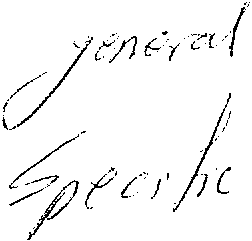 general
Specific